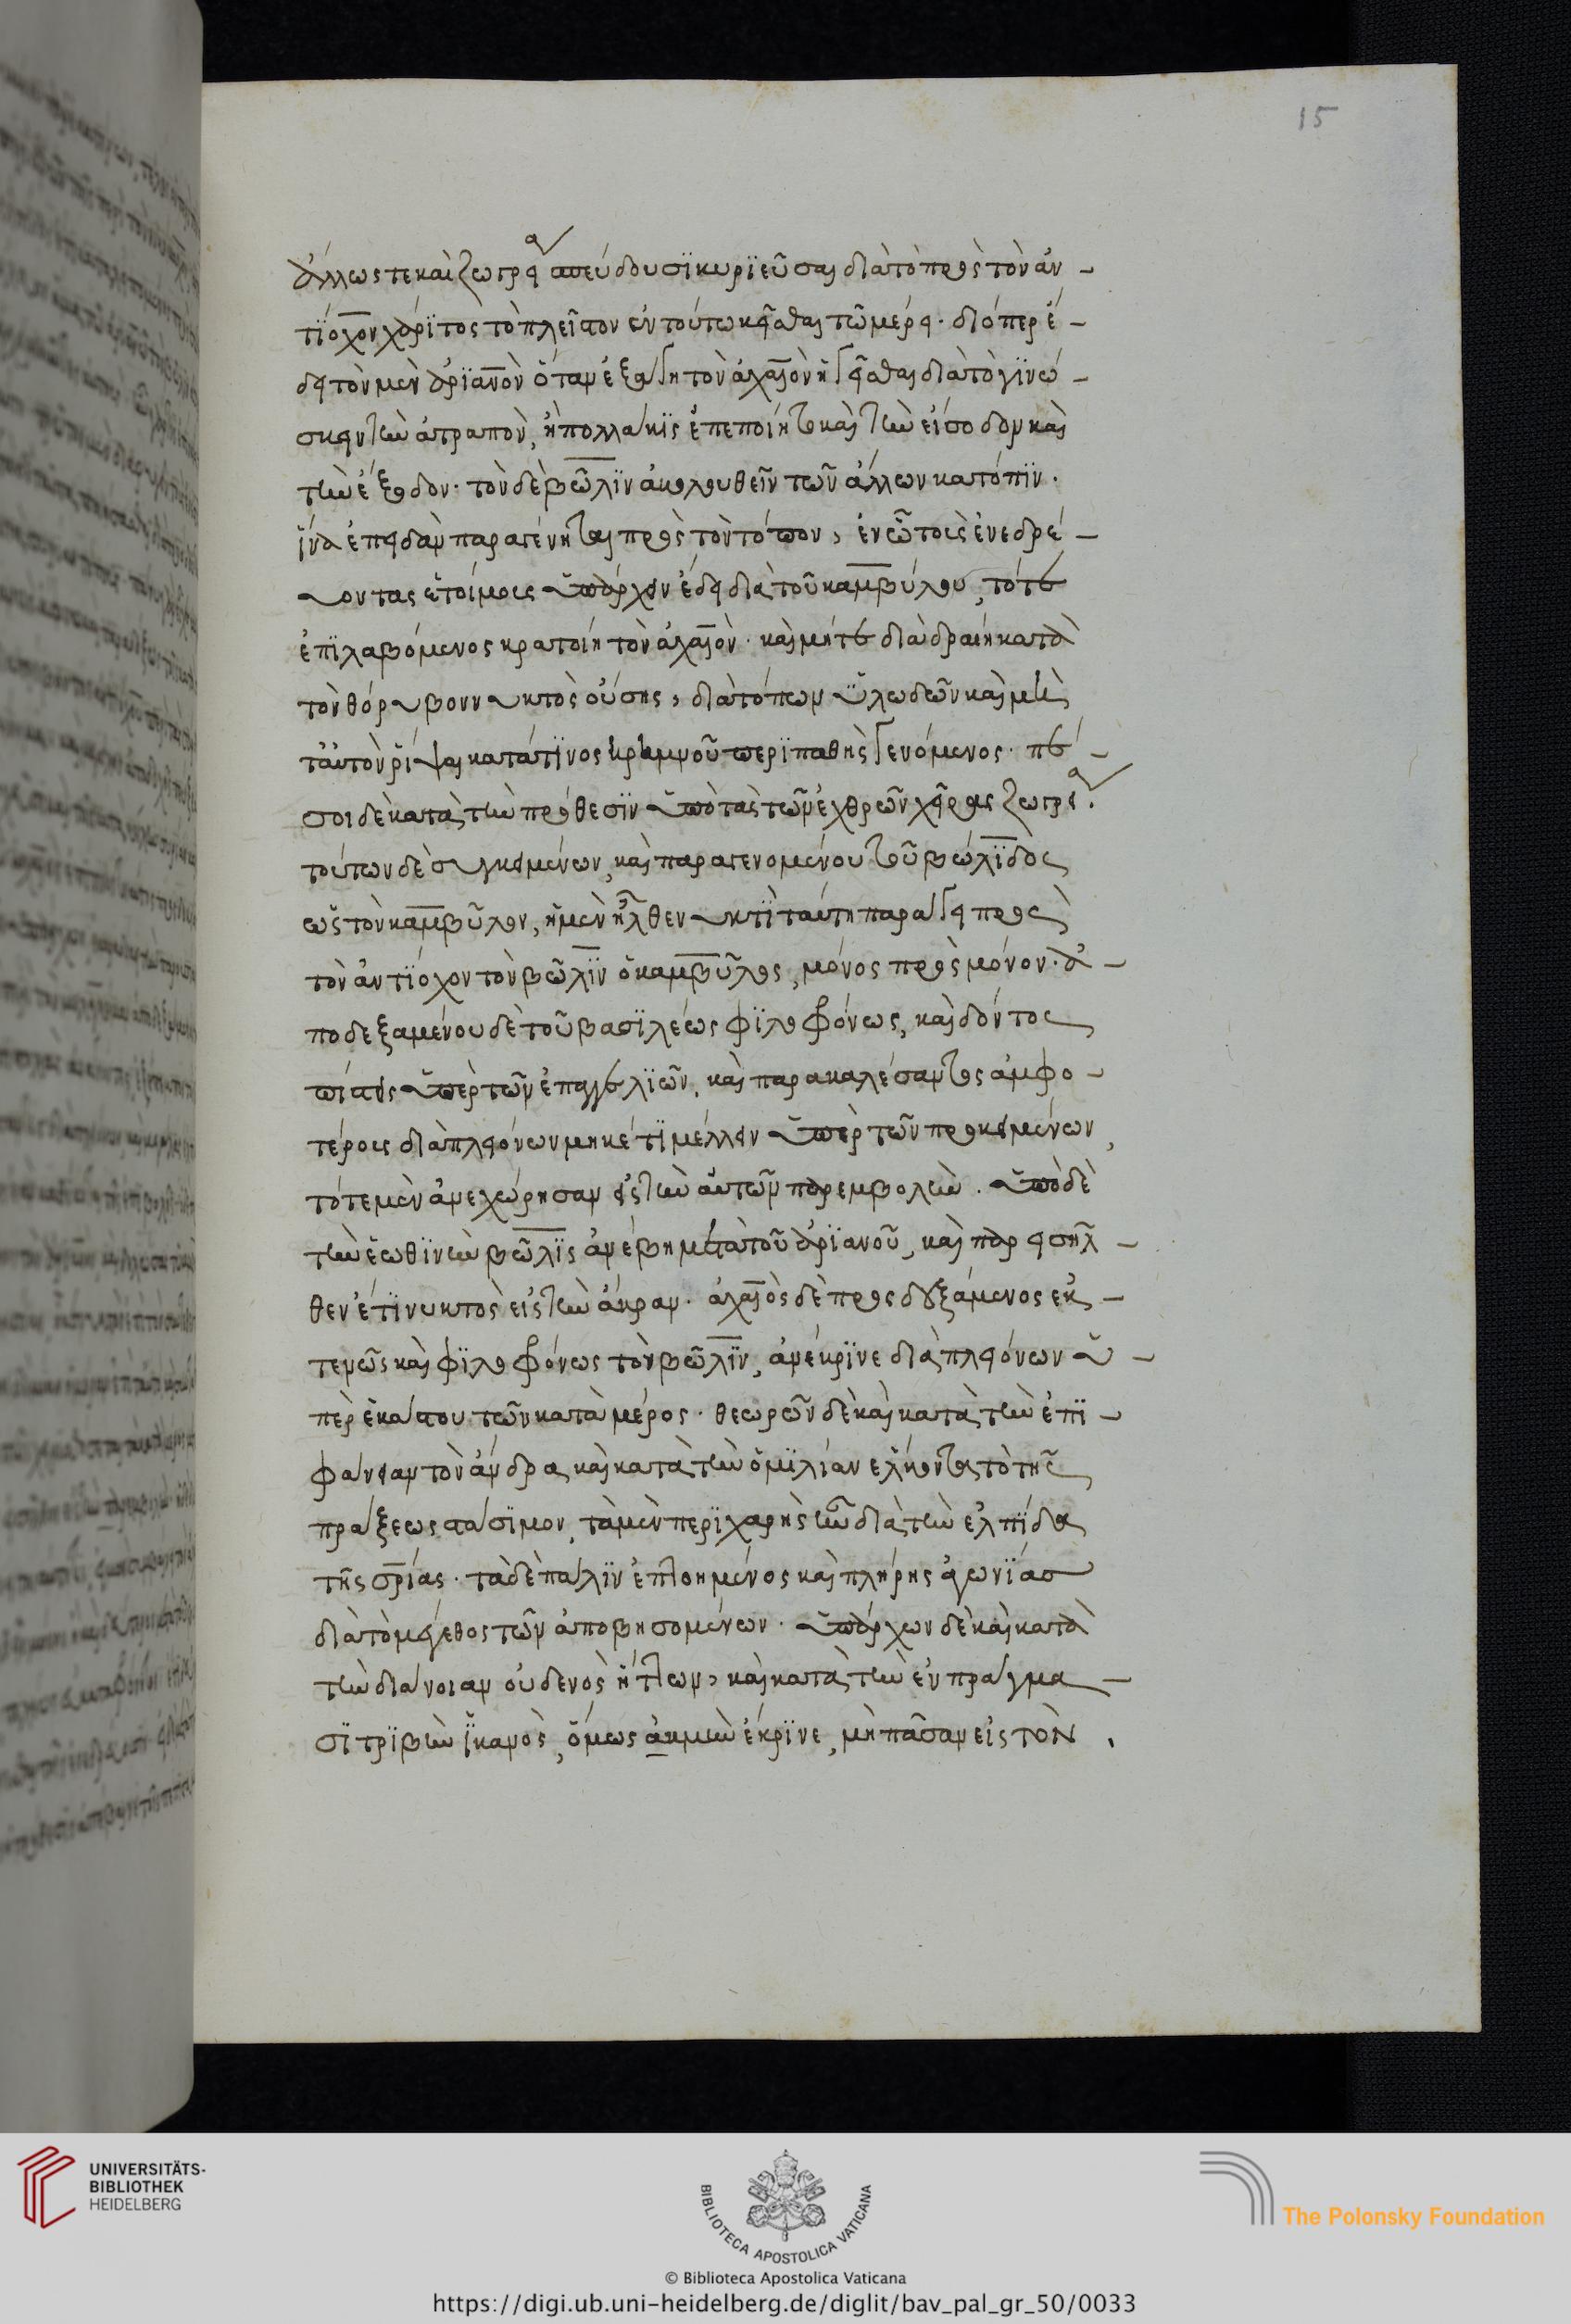 ἄλλως τε καὶ ζωγρείᾳ σπεύδουσϊ κυρϊεῦσαι διὰ τὸ πρὸς τὸν ἀν-
τϊοχον χάρϊτος τὸ πλεῖστον ἐν τούτω κεῖσθαι τῶ μέρει· διόπερ ἔ-
δει τὸν μὲν ἀρϊανὸν ὅταν ἐξάγη τὸν ἀχαιὸν ἡγεῖσθαι διὰ τὸ γϊνώ-
σκειν τὴν ἀτραπὸν, ἣ πολλάκϊς ἐπεποίητο καὶ τὴν εἴσοδον καὶ
τὴν ἔξοδον· τὸν δὲ βῶλϊν ἀκολουθεῖν τῶν ἄλλων κατόπϊν·
ἵνα ἐπειδὰν παραγένηται πρὸς τὸν τόπον, ἐν ὧ τοὺς ἐνεδρέ-
υοντας ἑτοίμους ὑπάρχειν ἔδει διὰ τοῦ καμβύλου, τότε
ἐπϊλαβόμενος κρατοίη τὸν ἀχαιὸν· καὶ μήτε διὰ δραίη κατὰ
τὸν θόρυβον νυκτὸς οὔσης, διὰ τόπων ὑλωδῶν καὶ μὴ
τἀυτὸν ῥίψαι κατά τϊνος κρημνοῦ περϊπαθὴς γενόμενος· πέ-
σοι δὲ κατὰ τὴν πρόθεσϊν ὑπὸ τὰς τῶν ἐχθρῶν χεῖρας ζωγρείᾳ.
τούτων δὲ συγκειμένων, καὶ παραγενομένου τοῦ βώλϊδος
ὡς τὸν καμβῦλον, ἣ μὲν ἦλθεν νυκτϊ ταύτη παράγει πρὸς
τὸν ἀντϊόχον τὸν βῶλϊν ὁ καμβῦλος, μόνος πρὸς μόνον· ἀ-
ποδεξαμένου δὲ τοῦ βασϊλέως φϊλοφρόνως, καὶ δόντος
πίστεις ὑπὲρ τῶν ἐπαγγελϊῶν, καὶ παρακαλέσαντος ἀμφο-
τέρους διὰ πλειόνων μηκέτϊ μέλλειν ὑπὲρ τῶν προκειμένων,
τότε μὲν ἀνεχώρησαν εἰς τὴν αὐτῶν παρεμβολὴν. ὑπὸ δὲ
τὴν ἑωθϊνὴν βῶλϊς ἀνέβη μετὰ τοῦ ἀρϊανοῦ, καὶ παρεισῆλ-
θεν ἔτϊ νυκτὸς εἰς τὴν ἄκραν· ἀχαιὸς δὲ προσδεξάμενος ἐκ-
τενῶς καὶ φϊλοφρόνως τὸν βῶλϊν, ἀνέκρϊνε διὰ πλειόνων ὑ-
πὲρ ἑκάστου τῶν κατὰ μέρος· θεωρῶν δὲ καὶ κατὰ τὴν ἐπϊ-
φάνειαν τὸν ἄνδρα, καὶ κατὰ τὴν ὁμϊλίαν ἕλκοντος τὸ τῆς
πράξεως στάσϊμον, τὰ μὲν περϊχαρὴς ἦν διὰ τὴν ἐλπΐδα
τῆς σρίας· τὰ δὲ πάλϊν ἐπτοημένος καὶ πλήρης ἀγωνϊάς
διὰ τὸ μέγεθος τῶν ἀποβησομένων· ὑπάρχων δὲ καὶ κατὰ
τὴν διάνοιαν οὐδενὸς ἥττων, καὶ κατὰ τὴν ἐν πράγμα-
σϊ τρϊβὴν ἱκανὸς, ὅμως ἀκμὴν ἔκρϊνε, μὴ πᾶσαν εἰς τὸν
15
UNIVERSITÄTS-
BIBLIOTHEK
HEIDELBERG
BIBLIOTECA APOSTOLICA VATICANA
The Polonsky Foundation
© Biblioteca Apostolica Vaticana
https://digi.ub.uni-heidelberg.de/diglit/bav_pal_gr_50/0033